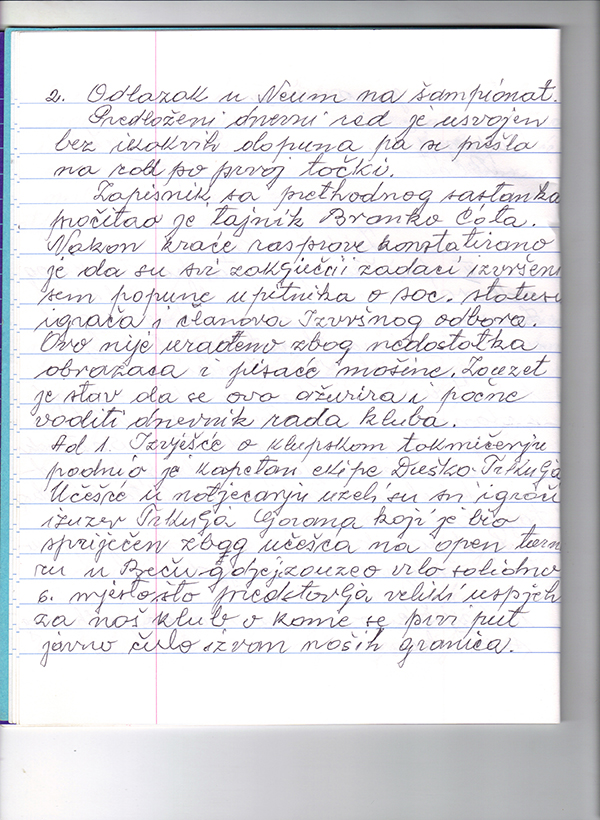 2. Odlazak u Neum na šampionat.
Predloženi dnevni red je usvojen
bez ikakvih dopuna pa se prešlo
na rad po prvoj točki.
Zapisnik sa prethodnog sastanka
pročitao je tajnik Branko Ćota.
Nakon kraće rasprave konstatirano
je da su svi zaključci i zadaci izvršeni
sem popune upitnika o soc. statusu
igrača i članova Izvršnog odbora.
Ovo nije urađeno zbog nedostatka
obrazaca i pisaće mašine. Zauzet
je stav da se ovo ažurira i počne
voditi dnevnik rada kluba.
Ad 1. Izvješće o klupskom takmičenju
podnio je kapetan ekipe Duško Trkulja
Učešće u natjecanju uzeli su svi igrači
izuzev Trkulja Gorana koji je bio
spriječen zbog učešća na open turni
ru u Beču gdje je zauzeo vrlo solidno
6. mjesto što predstavlja veliki uspjeh
za naš klub o kome se prvi put
javno čulo izvan naših granica.